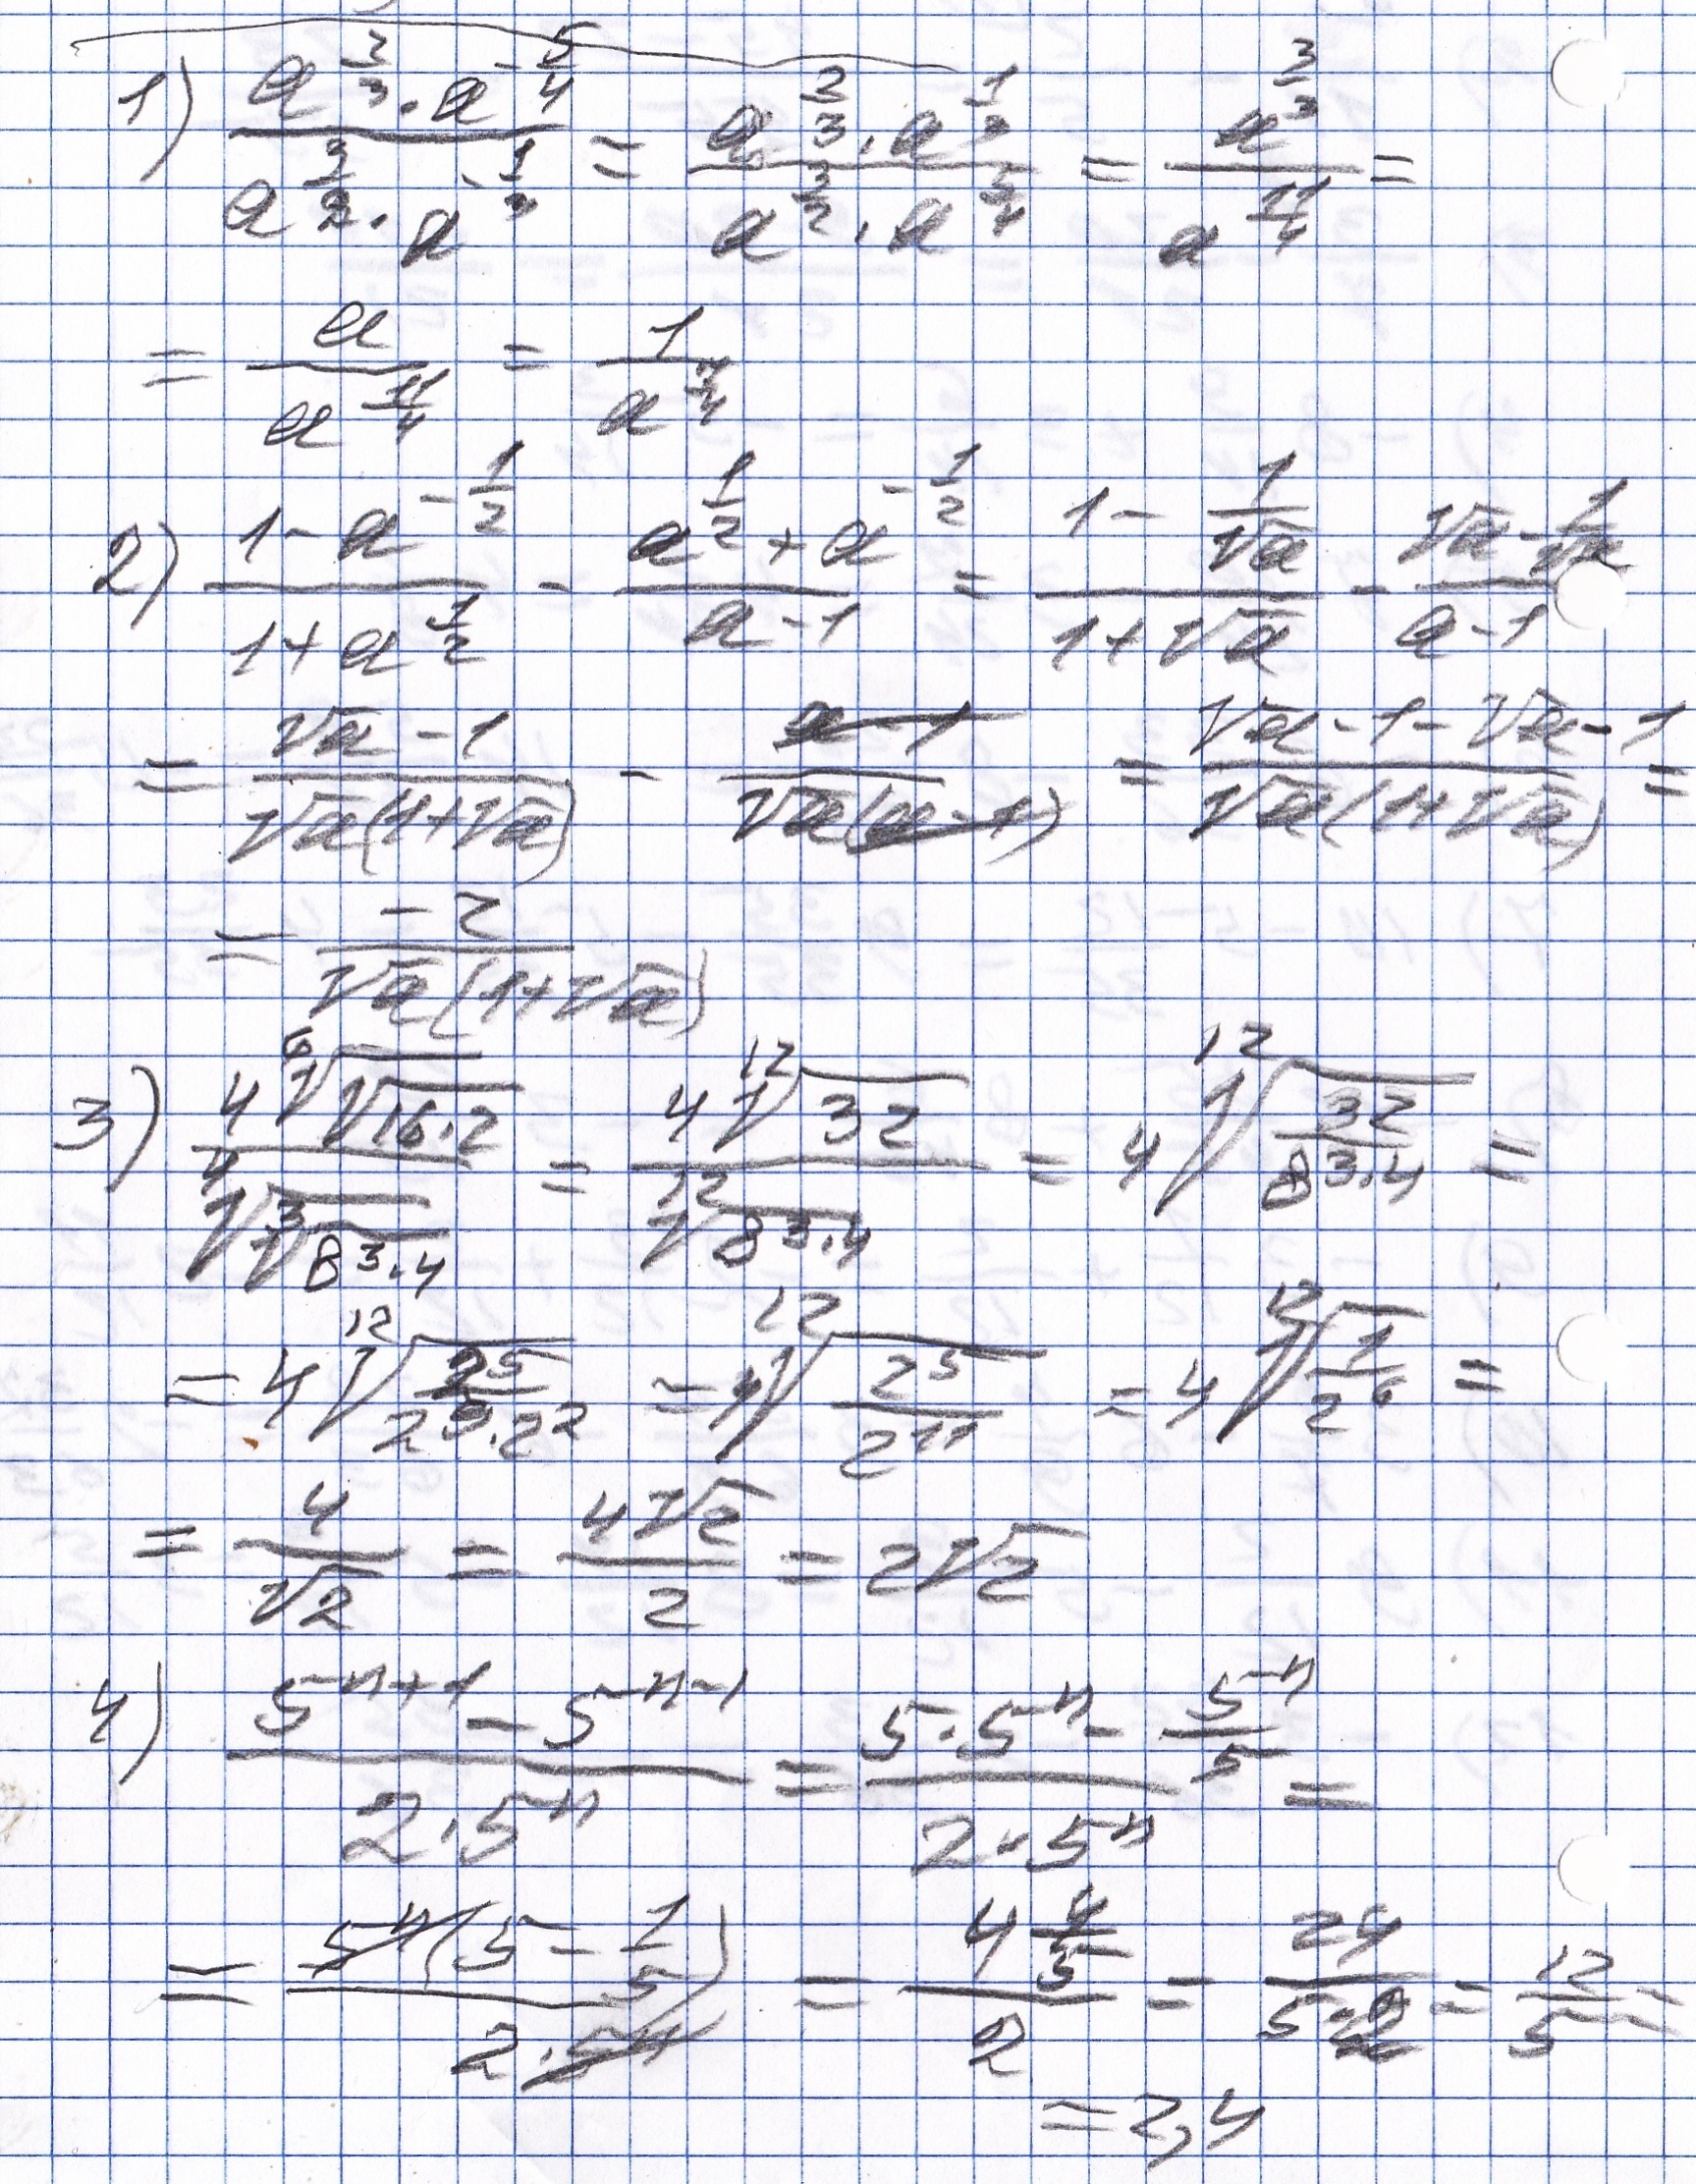 1) (a^(2/3) · a^(-5/4)) / (a^(3/2) · a^(-1/3)) = (a^(2/3) · a^(1/3)) / (a^(3/2) · a^(5/4)) = a^(3/3) / a^(11/4) =
= a / a^(11/4) = 1 / a^(7/4)
2) (1 - a^(-1/2)) / (1 + a^(1/2)) - (a^(1/2) + a^(-1/2)) / (a - 1) = (1 - 1/√a) / (1 + √a) - (√a - 1/√a) / (a - 1)
= (√a - 1) / (√a(1+√a)) - (a - 1) / (√a(a - 1)) = (√a - 1 - √a - 1) / (√a(1+√a)) =
= -2 / (√a(1+√a))
3) (4 ⁶√(√(16·2))) / (⁴√(³√(8^3·4))) = (4 ¹²√32) / (¹²√(8^3·4)) = 4 ¹²√(32 / (8^3·4)) =
= 4 ¹²√(2^5 / (2^9·2^2)) = 4 ¹²√(2^5 / 2^11) = 4 ¹²√(1 / 2^6) =
= 4 / √2 = 4√2 / 2 = 2√2
4) (5^(n+1) - 5^(n-1)) / (2·5^n) = (5·5^n - 5^n/5) / (2·5^n) =
= 5^n(5 - 1/5) / (2·5^n) = (4 4/5) / 2 = 24 / (5·2) = 12/5 =
= 2,4